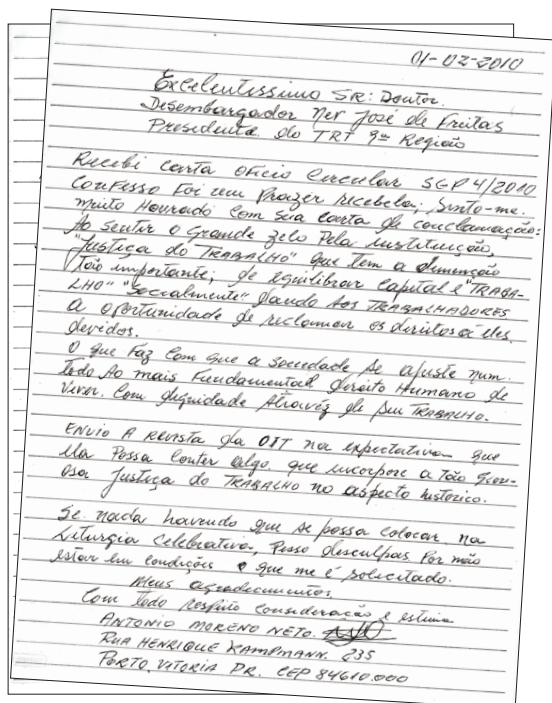 01-02-2010
Excelentissimo SR: Doutor.
Desembargador Ney José de Freitas
Presidente do TRT 9ª Região
Recebi carta oficio Circular SGP 4/2010
Confesso foi um Prazer recebela; Sinto-me:
muito Honrado com sua carta de conclamação:
Ao sentir o Grande zelo Pela instituição,
"Justiça do TRABALHO" que tem a dimenção
Tão importante; de equilibrar capital e "TRABA-
LHO" "Socialmente" dando AOS TRABALHADORES
a oportunidade de reclamar os direitos á eles
devidos.
O que Faz com que a sociedade se ajuste num
todo Ao mais Fundamental direito Humano de
Viver. Com dignidade Atravéz de seu TRABALHO.
ENVIO A revista da OIT na expectativa que
ela Possa conter algo que incorpore a Tão Glori-
osa Justiça do TRABALHO no aspecto histórico.
Se nada havendo que se possa colocar na
Liturgia Celebrativa, Pesso desculpas Por não
estar em condições que me é solicitado.
Meus agradecimentos,
Com todo respeito consideração e estima
ANTONIO MORENO NETO.
RUA HENRIQUE KAMPMANN. 235
PORTO VITORIA PR. CEP 84610.000